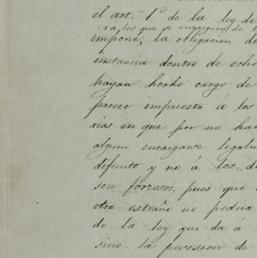 el art. 1º de la ley de
a, los que se encarguen de
impone, la obligacion de
instancia dentro de ocho
hayan hecho cargo de
parece impuesta á los
rias en que por no ha
alguno encargarse legalm
difunto y no á los d
son forzosos, pues que
otro estraño no podria
de la ley que da á
sino la posesion de